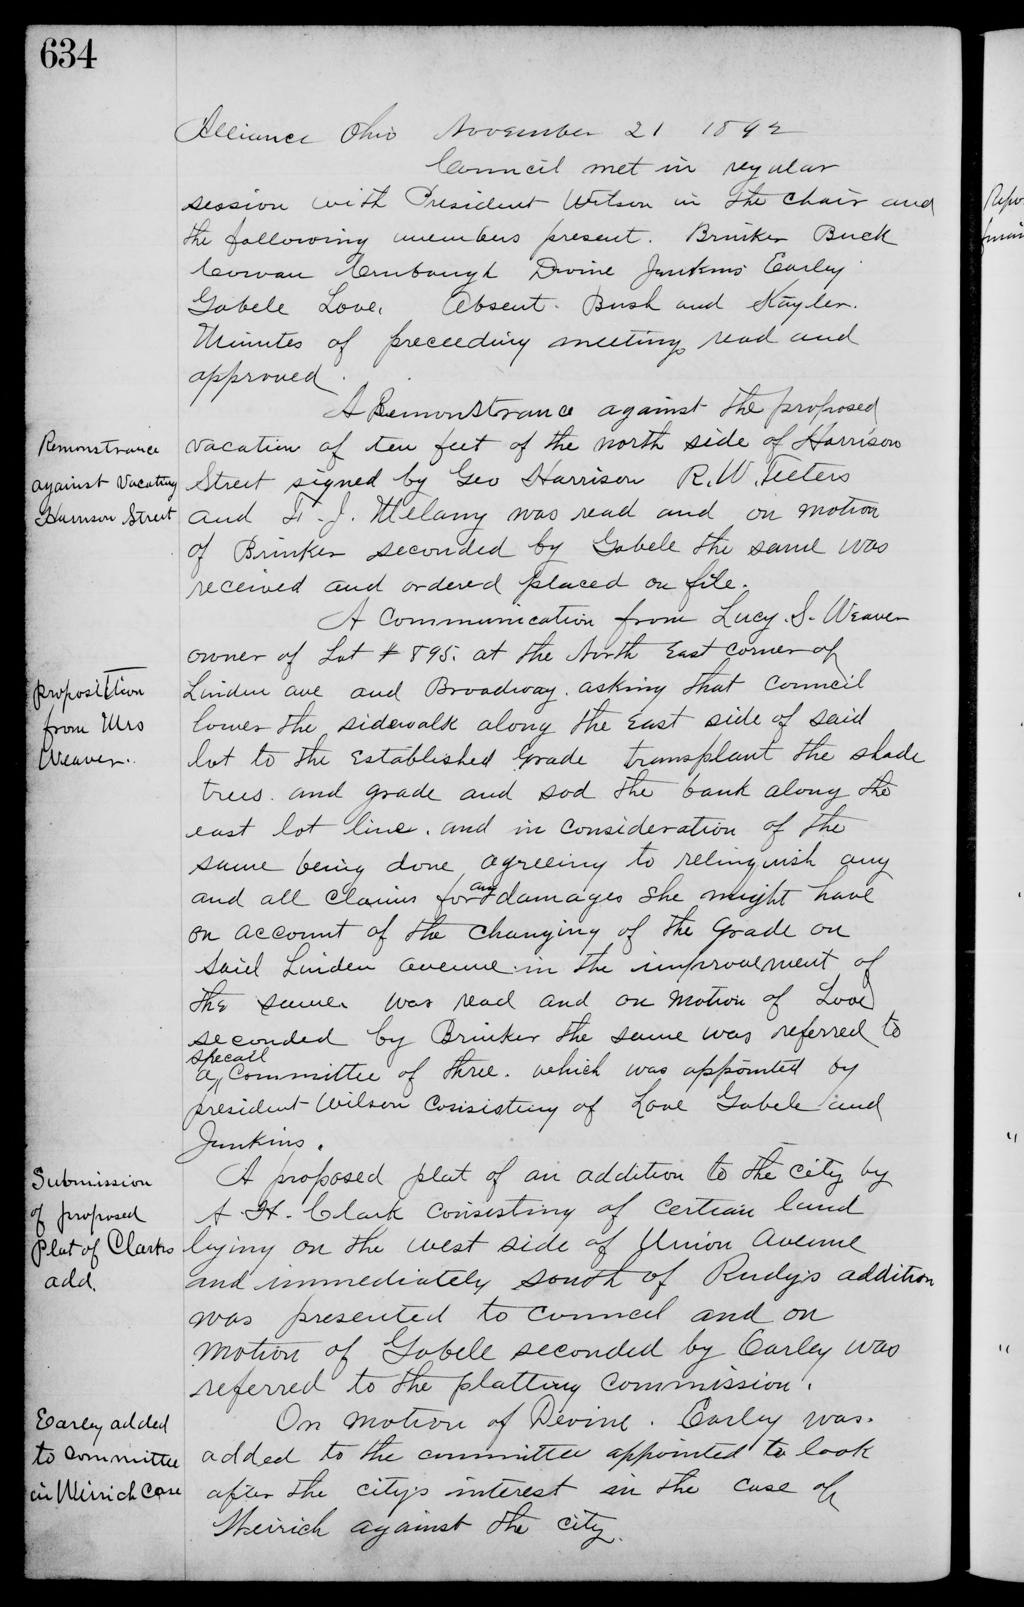 634
Alliance Ohio November 21 1892
Council met in regular
session with President Wilson in the chair and
the following members present. Brinker Buck
Cowan Armbaugh Divine Junkins Earley
Gabele Love. Absent. Bush and Kayler.
Minutes of preceeding meeting read and
approved.
A Remonstrance against the proposed
Remonstrance
against Vacating
Harrison Street
vacation of ten feet of the north side of Harrison
Street signed by Geo Harrison R. W. Teeters
and J. Melany was read and on motion
of Brinker seconded by Gabele the same was
received and ordered placed on file.
A Communication from Lucy. S. Weaver
owner of Lot # 895. at the North East corner of
proposition
from Mrs
Weaver.
Linden ave and Broadway. asking that Council
lower the sidewalk along the East side of said
lot to the Established Grade transplant the shade
trees. and grade and sod the bank along the
east lot line. and in consideration of the
same being done agreeing to relinquish any
and all claims for any damages she might have
on account of the changing of the Grade on
said Linden avenue in the improvement of
the same. was read and on motion of Love
seconded by Brinker the same was referred to
a specall Committee of three. which was appointed by
president Wilson consisting of Love Gabele and
Junkins.
Submission
of proposed
Plat of Clarks
add.
A proposed plat of an addition to the city by
A. H. Clark consisting of certian land
laying on the west side of Union Avenue
and immediately south of Rudy's addition
was presented to council and on
motion of Gabele seconded by Earley was
referred to the platting commission.
Earley added
to Committee
in Weirich Case
On motion of Devine. Earley was.
added to the committee appointed to look
after the city's interest in the case of
Weirich against the city.